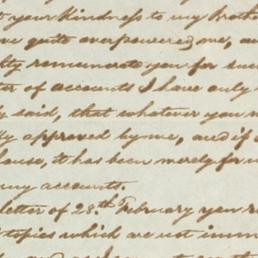 your kindness to my brother
quite overpowered me, and
remunerate you for such
of accounts I have only
said, that whatever you
approved by me, and if
, it has been merely for
my accounts.
letter of 28th February you
topics which are not imm